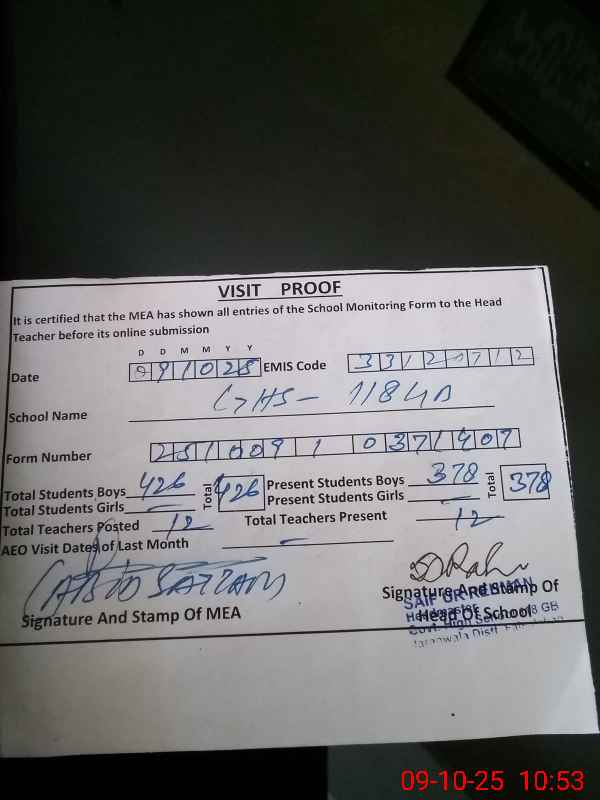 VISIT PROOF
It is certified that the MEA has shown all entries of the School Monitoring Form to the Head
Teacher before its online submission
D D M M Y Y
Date 091025 EMIS Code 33120712
School Name GHS- 118 GB
Form Number 251009 1 0371907
Total Students Boys 426 Total 426 Present Students Boys 378 Total 378
Total Students Girls - Present Students Girls -
Total Teachers Posted 12 Total Teachers Present 12
AEO Visit Dates of Last Month -
Signature And Stamp Of MEA
Signature And Stamp Of
Head Of School
SAIF UR REHMAN
Headmaster
Govt. High School 118 GB
Jaranwala Distt.
09-10-25 10:53